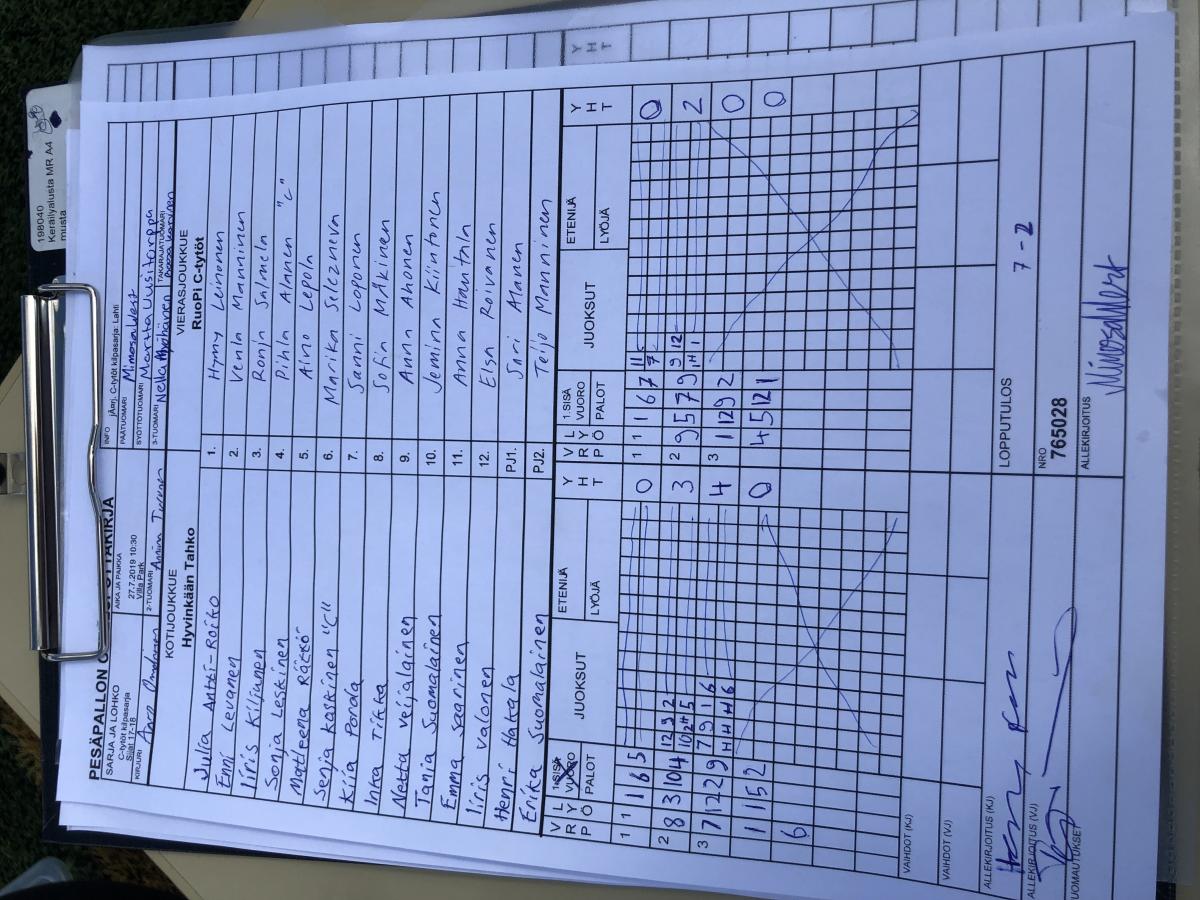 198040
Keräilyalusta MR A4
musta
PESÄPALLON
SARJA JA LOHKO
C-tytöt kilpasarja
Sijat 17-18
AIKA JA PAIKKA
27.7.2019 10:30
Villa Park
INFO
C-tytöt kilpasarja: Lahti
PÄÄTUOMARI
SYÖTTÖTUOMARI Martta Uusitorppa
KIRJURI
2-TUOMARI
3-TUOMARI Nella
TAKARAJATUOMARI
KOTIJOUKKUE
Hyvinkään Tahko
VIERASJOUKKUE
RuoPi C-tytöt
Julia Antti-Roiko 1. Hymy Leinonen
Enni Levanen 2. Venla Manninen
Iiris Kiljunen 3. Ronja Salmela
Sonja Leskinen 4. Pihla Alanen "C"
Matleena Räckö 5. Aino Lepola
Senja Kaskinen "C" 6. Marika Selezneva
Kiia Porola 7. Sanni Loponen
Inka Tikka 8. Sofia Mäkinen
Netta Veijalainen 9. Anna Ahonen
Tanja Suomalainen 10. Jemina Kiintonen
Emma Saarinen 11. Anna Hauitala
Iiris Valonen 12. Elsa Roivanen
Henri Hakala PJ1. Jari Alanen
Erika Suomalainen PJ2. Teijo Manninen
V R P L Y Ö 1.SISÄ VUORO PALOT JUOKSUT ETENIJÄ LYÖJÄ Y H T V R P L Y Ö 1.SISÄ VUORO PALOT JUOKSUT ETENIJÄ LYÖJÄ Y H T
1 1 1 6 5 0 1 1 1 6 7 11 7 0
2 8 3 10 4 12 3 2 10 12 5 3 2 9 5 7 9 9 12 2
3 7 12 2 9 7 9 1 6 H H H 6 4 3 1 12 9 2 0
1 1 5 2 0 4 5 12 1 0
6
VAIHDOT (KJ)
VAIHDOT (VJ)
ALLEKIRJOITUS (KJ)
LOPPUTULOS 7 - 2
ALLEKIRJOITUS (VJ)
NRO
765028
HUOMAUTUKSET
ALLEKIRJOITUS
Y H T